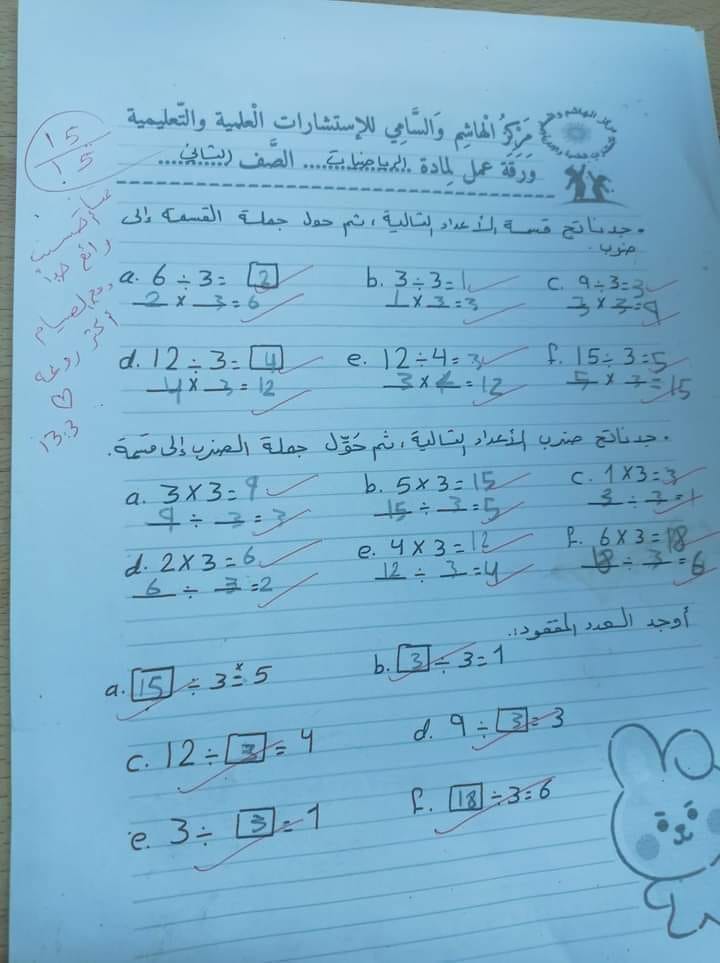 مَركزُ الْهاشِم وَالسَّامِي للإستشارات الْعلمية والتّعليمية
ورَقَة عمل لِمادة ..الرياضيات.... الصَّف ..الثاني.....
15
15
رائع جداً
ومع الصيام
أكثر روعة
13.3
. جد ناتج قسمة الأعداد التالية ، ثم حول جملة القسمة إلى
ضرب.
a. 6 ÷ 3 = 2 b. 3 ÷ 3 = 1 c. 9 ÷ 3 = 3
2 × 3 = 6 1 × 3 = 3 3 × 3 = 9
d. 12 ÷ 3 = 4 e. 12 ÷ 4 = 3 f. 15 ÷ 3 = 5
4 × 3 = 12 3 × 4 = 12 5 × 3 = 15
. جد ناتج ضرب الأعداد التالية ، ثم حَوِّل جملة الضرب إلى قسمة.
a. 3 × 3 = 9 b. 5 × 3 = 15 c. 1 × 3 = 3
9 ÷ 3 = 3 15 ÷ 3 = 5 3 ÷ 3 = 1
d. 2 × 3 = 6 e. 4 × 3 = 12 f. 6 × 3 = 18
6 ÷ 3 = 2 12 ÷ 3 = 4 18 ÷ 3 = 6
أوجد العدد المفقود:.
a. 15 ÷ 3 = 5 b. 3 ÷ 3 = 1
c. 12 ÷ 3 = 4 d. 9 ÷ 3 = 3
e. 3 ÷ 3 = 1 f. 18 ÷ 3 = 6